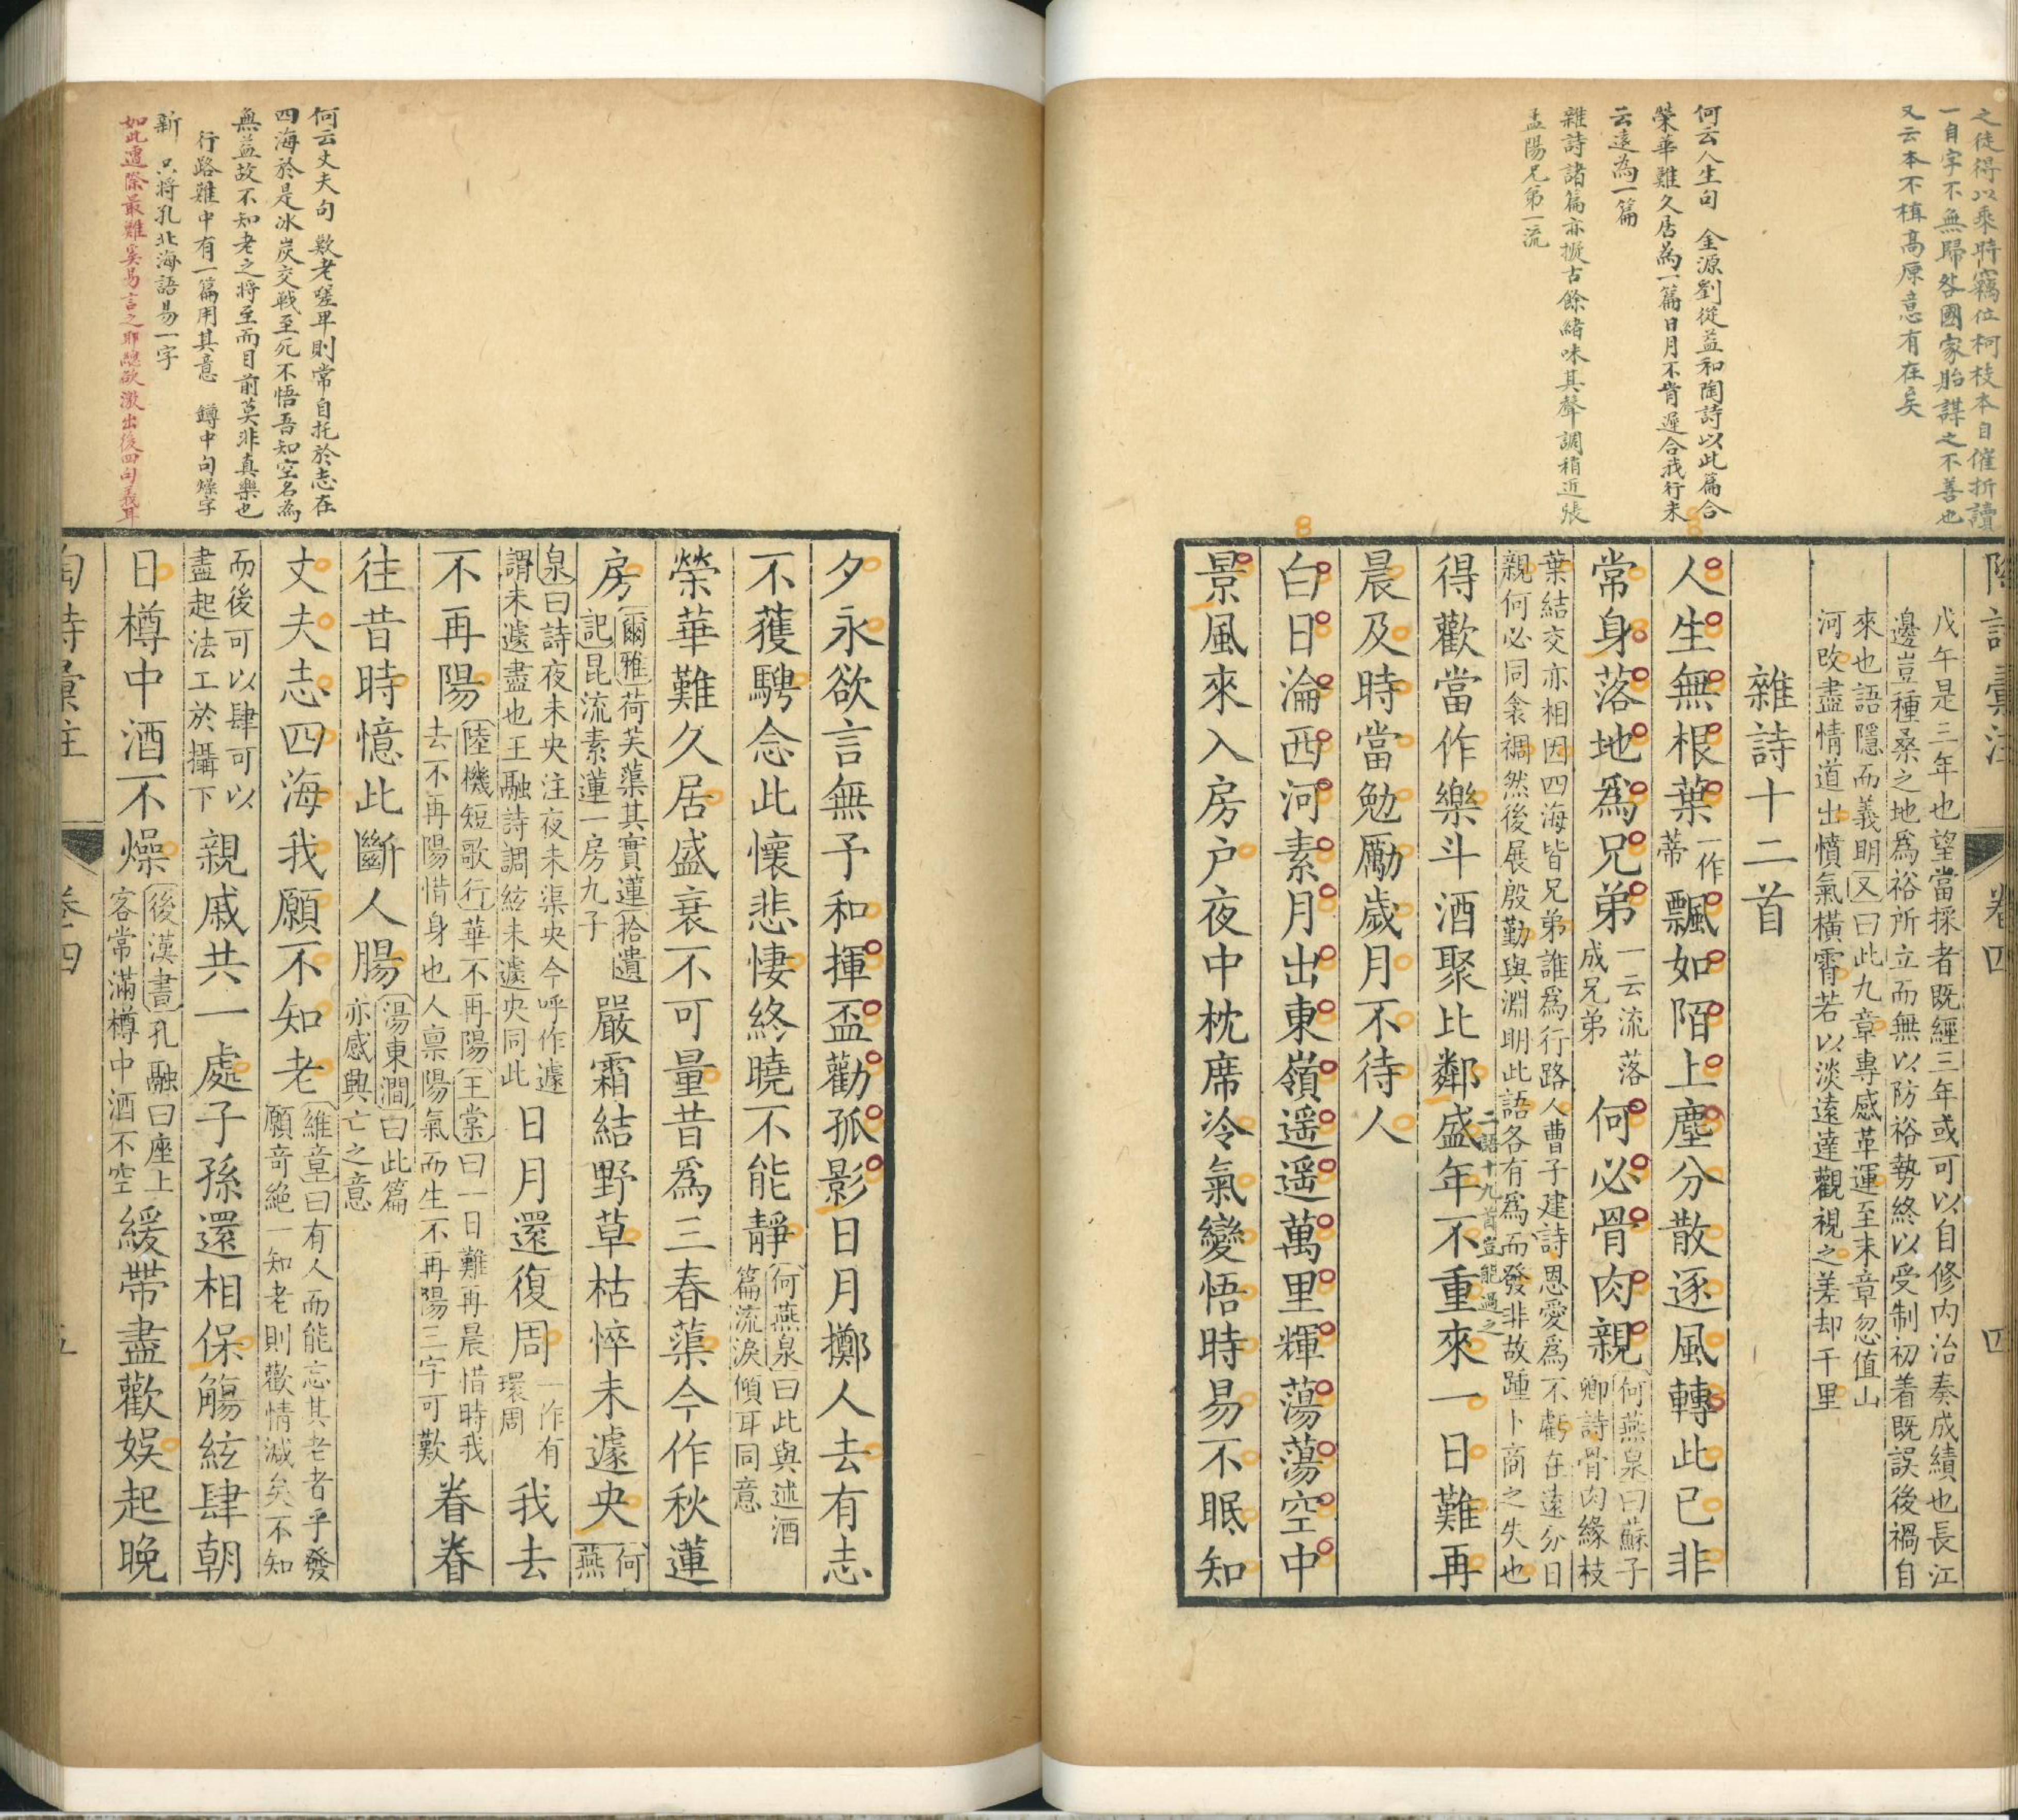 之徒得以乘時竊位柯枝本自催折讀
一自字不無歸咎國家貽謀之不善也
又云本不植高原意有在矣
何云人生句 金源劉從益和陶詩以此篇合
榮華難久居為一篇日月不肯遲合我行未
云遠為一篇
雜詩諸篇亦擬古餘緒味其聲調稍近張
孟陽兄弟一流
卷四
四
戊午是三年也望當採者既經三年或可以自修內治奏成績也長江
邊豈種桑之地爲裕所立而無以防裕勢終以受制初着既誤後禍自
來也語隱而義明又曰此九章專感革運至末章忽值山
河改盡情道出憤氣橫霄若以淡遠達觀視之差却千里
雜詩十二首
人生無根葉一作蒂飄如陌上塵分散逐風轉此已非
常身落地爲兄弟一云流落成兄弟何必骨肉親何燕泉曰蘇子卿詩骨肉緣枝
葉結交亦相因四海皆兄弟誰爲行路人曹子建詩恩愛爲不虧在遠分日
親何必同衾裯然後展殷勤與淵明此語各有爲而發非故踵卜商之失也
二語十九首豈能過之
得歡當作樂斗酒聚比鄰盛年不重來一日難再
晨及時當勉勵歲月不待人
白日淪西河素月出東嶺遥遥萬里輝蕩蕩空中
景風來入房户夜中枕席冷氣變悟時易不眠知
何云丈夫句 歎老嗟卑則常自托於志在
四海於是冰炭交戰至死不悟吾知空名為
無益故不知老之將至而目前莫非真樂也
行路難中有一篇用其意 罇中句燥字
新 只將孔北海語易一字
如此遭際最難奚易言之耶總欲激出後四句義耳
夕永欲言無予和揮盃勸孤影日月擲人去有志
不獲騁念此懷悲悽終曉不能靜何燕泉曰此與述酒篇流淚傾耳同意
榮華難久居盛衰不可量昔爲三春蕖今作秋蓮
房爾雅荷芙蕖其實蓮拾遺記昆流素蓮一房九子嚴霜結野草枯悴未遽央何燕
泉曰詩夜未央注夜未渠央今呼作遽謂未遽盡也王融詩調絃未遽央同此日月還復周一作有環周我去
不再陽陸機短歌行華不再陽王棠曰一日難再晨惜時我去不再陽惜身也人禀陽氣而生不再陽三字可歎眷眷
往昔時憶此斷人腸湯東澗曰此篇亦感興亡之意
丈夫志四海我願不知老維章曰有人而能忘其老者乎發願奇絶一知老則歡情減矣不知
而後可以肆可以盡起法工於攝下親戚共一處子孫還相保觴絃肆朝
日樽中酒不燥後漢書孔融曰座上客常滿樽中酒不空緩帶盡歡娛起晚
陶詩彙注
卷四
五